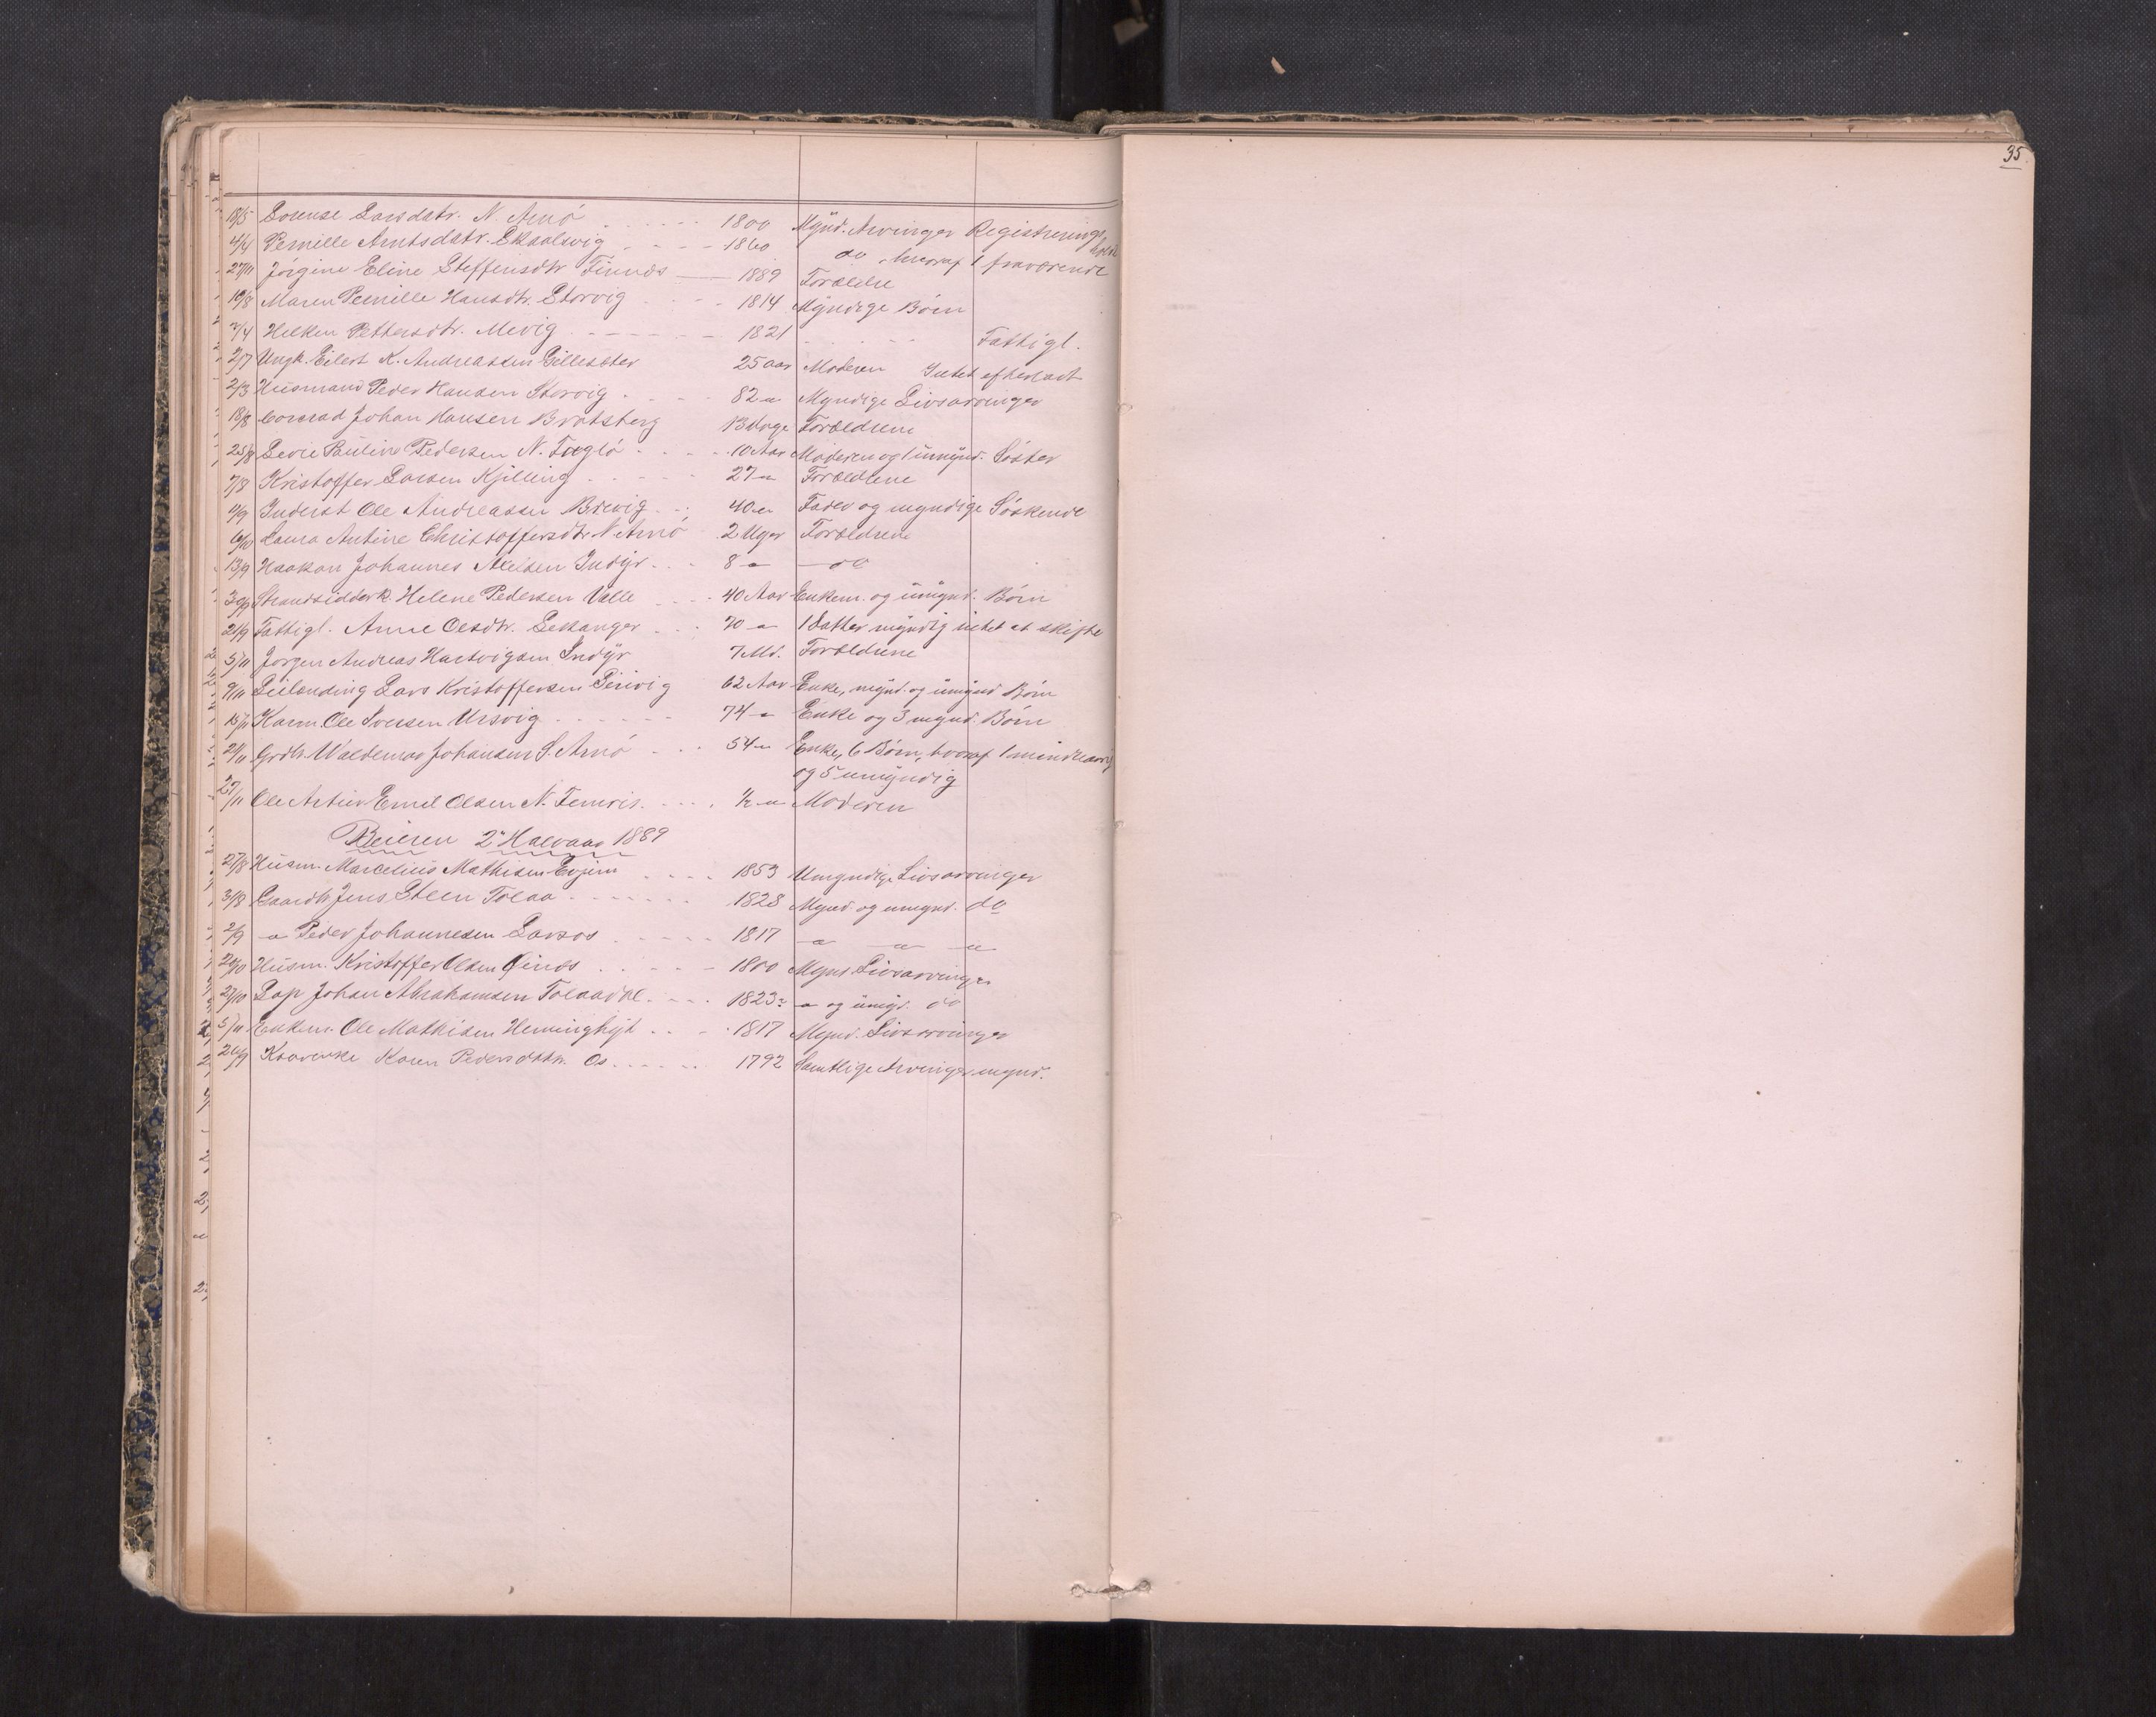 35
18/5 Lorense Larsdatr. N. Arnö 1800 Mynd. Arvinger Registrerings
4/4 Pernille Arntsdatr. Skaalsvig 1860 do hvoraf 1 fraværende
27/11 Jörgine Eline Steffensdtr Finnæs 1889 Forældre
10/8 Maren Pernille Hansdtr. Storvig 1814 Myndige Börn
2/4 Heltzen Pettersdtr. Mevig 1821 Fattigl.
2/7 Ungk. Eilert K. Andreassen Gilleseter 25 aar Moderen Intet efterladt
2/3 Husmand Peder Hansen Storvig 82 " Myndige Livsarvinger
18/8 Conrad Johan Hansen Bratsberg 13 dage Forældrene
25/8 Pauline Pedersen N. Fuglö 10 Aar Moderen og 1 umynd. Söster
7/8 Kristoffer Larsen Kjelling 27 " Forældrene
4/9 Inderst Ole Andreassen Brevig 40 " Fader og myndige Söskende
6/10 Laura Antine Christoffersdtr N Arnö 2 Uger Forældrene
13/9 Haakon Johannes Axelsen Indyr 8 " do
30/9 Strandsidderk. Helene Pedersen Valle 40 Aar Enkem. og umynd. Börn
21/9 Fattigl. Anne Olsdtr. Leskanger 70 " 1 datter myndig intet at skifte
5/11 Jörgen Andreas Hartvigsen Indyr 7 Md. Forældrene
9/11 Leilending Lars Kristoffersen 62 Aar Enke, mynd. og umynd Börn
15/11 Ole Iversen Ursvig 74 " Enke og 3 mynd. Börn
21/11 Grdb. Waldemar Johansen S. Arnö 54 " Enke, 6 Börn, hvoraf 1 mindreaarig
og 5 umyndig
27/11 Ole Emil Olsen N. 1/2 " Moderen
Beieren 2det Halvaar 1889
27/8 Husm. Marcelius Mathisen Evjen 1853 Umyndige Livsarvinger
31/8 Gaardb Jens Steen Tolaa 1828 Mynd. og umynd. do
2/9 " Peder Johannesen Larsos 1817 " " "
20/10 Husm. Kristoffer Olsen 1800 Mynd Livsarvinger
27/10 Lap Johan Abrahamsen Tolaadal 1823 " og umyd. do
5/11 Enkem. Ole Mathisen 1817 Mynd. Livsarvinger
26/9 Karen Pedersdatr. Os 1792 Samtlige Arvinger mynd.